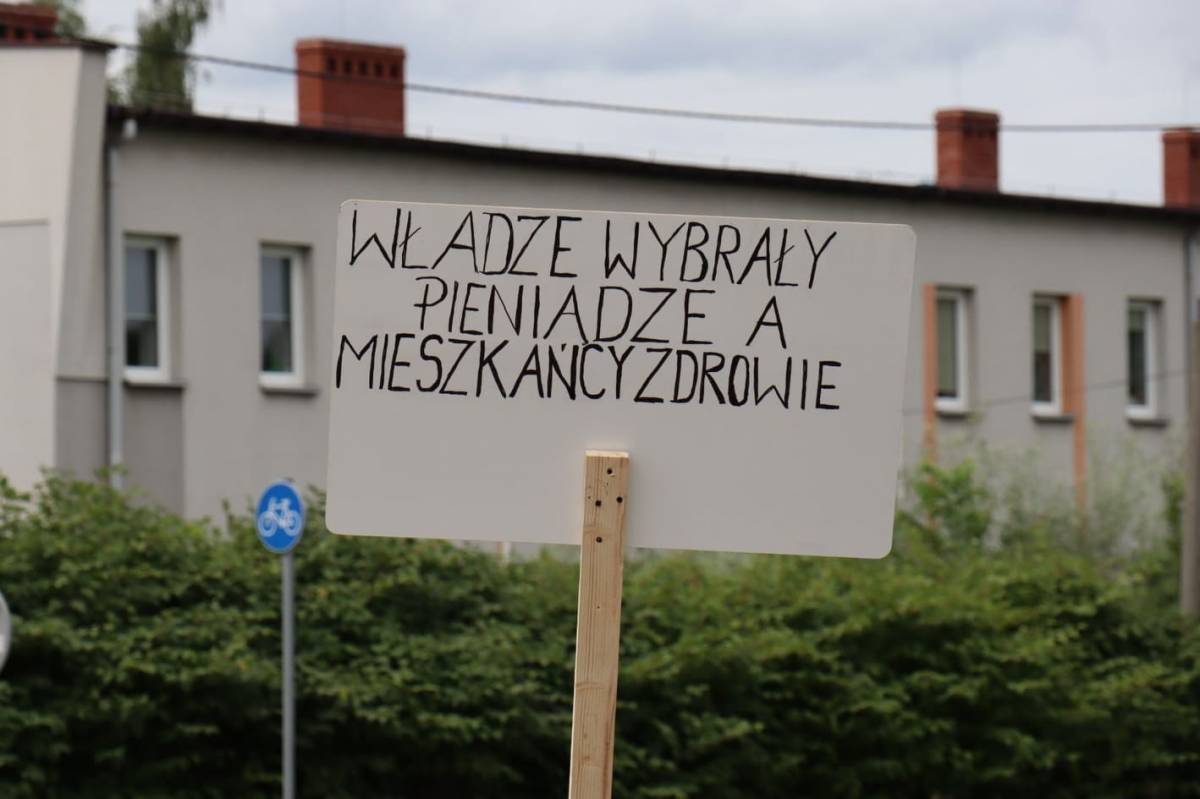 WŁADZE WYBRAŁY
PIENIĄDZE A
MIESZKAŃCY ZDROWIE